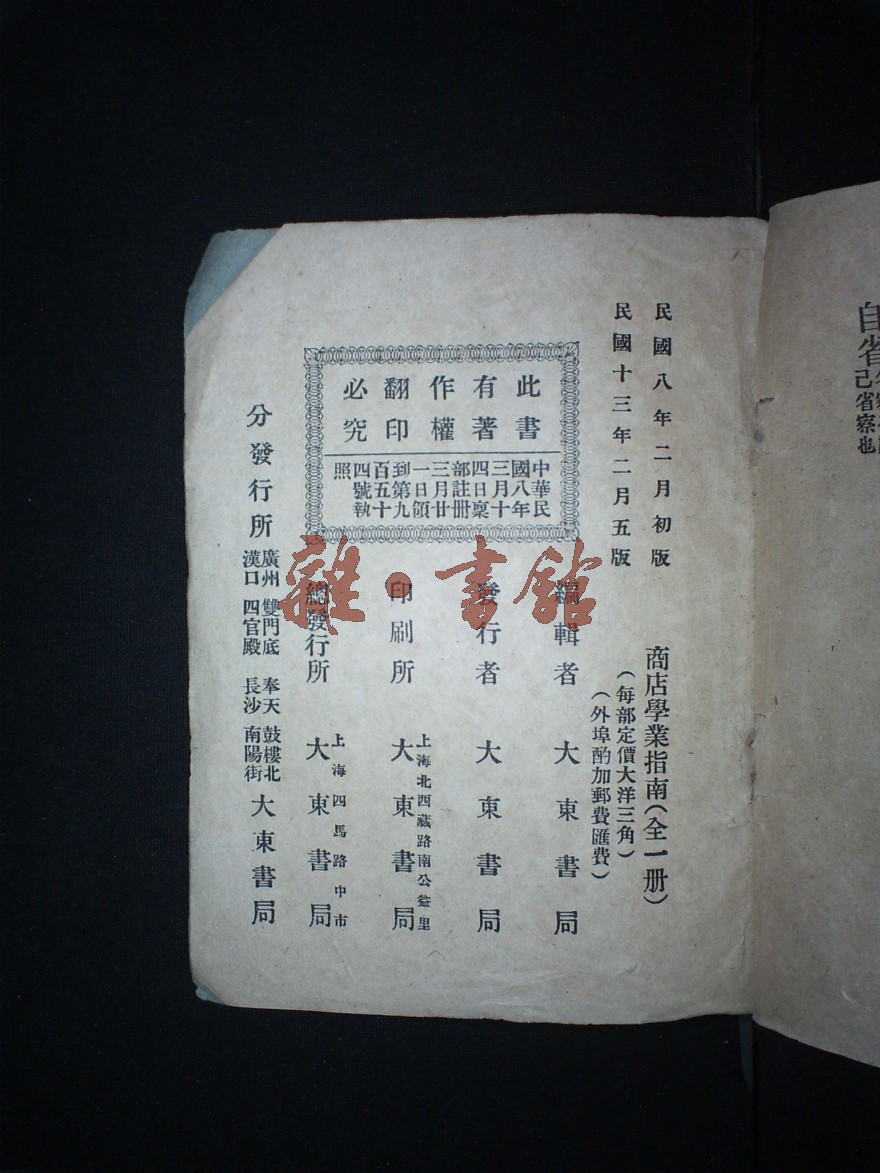 自省
己省察也
民國八年二月初版
民國十三年二月五版
商店學業指南(全一册)
(每部定價大洋三角)
(外埠酌加郵費匯費)
此書
有著
作權
翻印
必究
中華民
國八年
三月十
四日稟
部註冊
三月廿
一日領
到第九
百五十
四號執
照
編輯者 大東書局
發行者 大東書局
印刷所 上海北西藏路南公益里 大東書局
總發行所 上海四馬路中市 大東書局
分發行所 廣州 雙門底 奉天 鼓樓北
漢口 四官殿 長沙 南陽街 大東書局
雜·書館